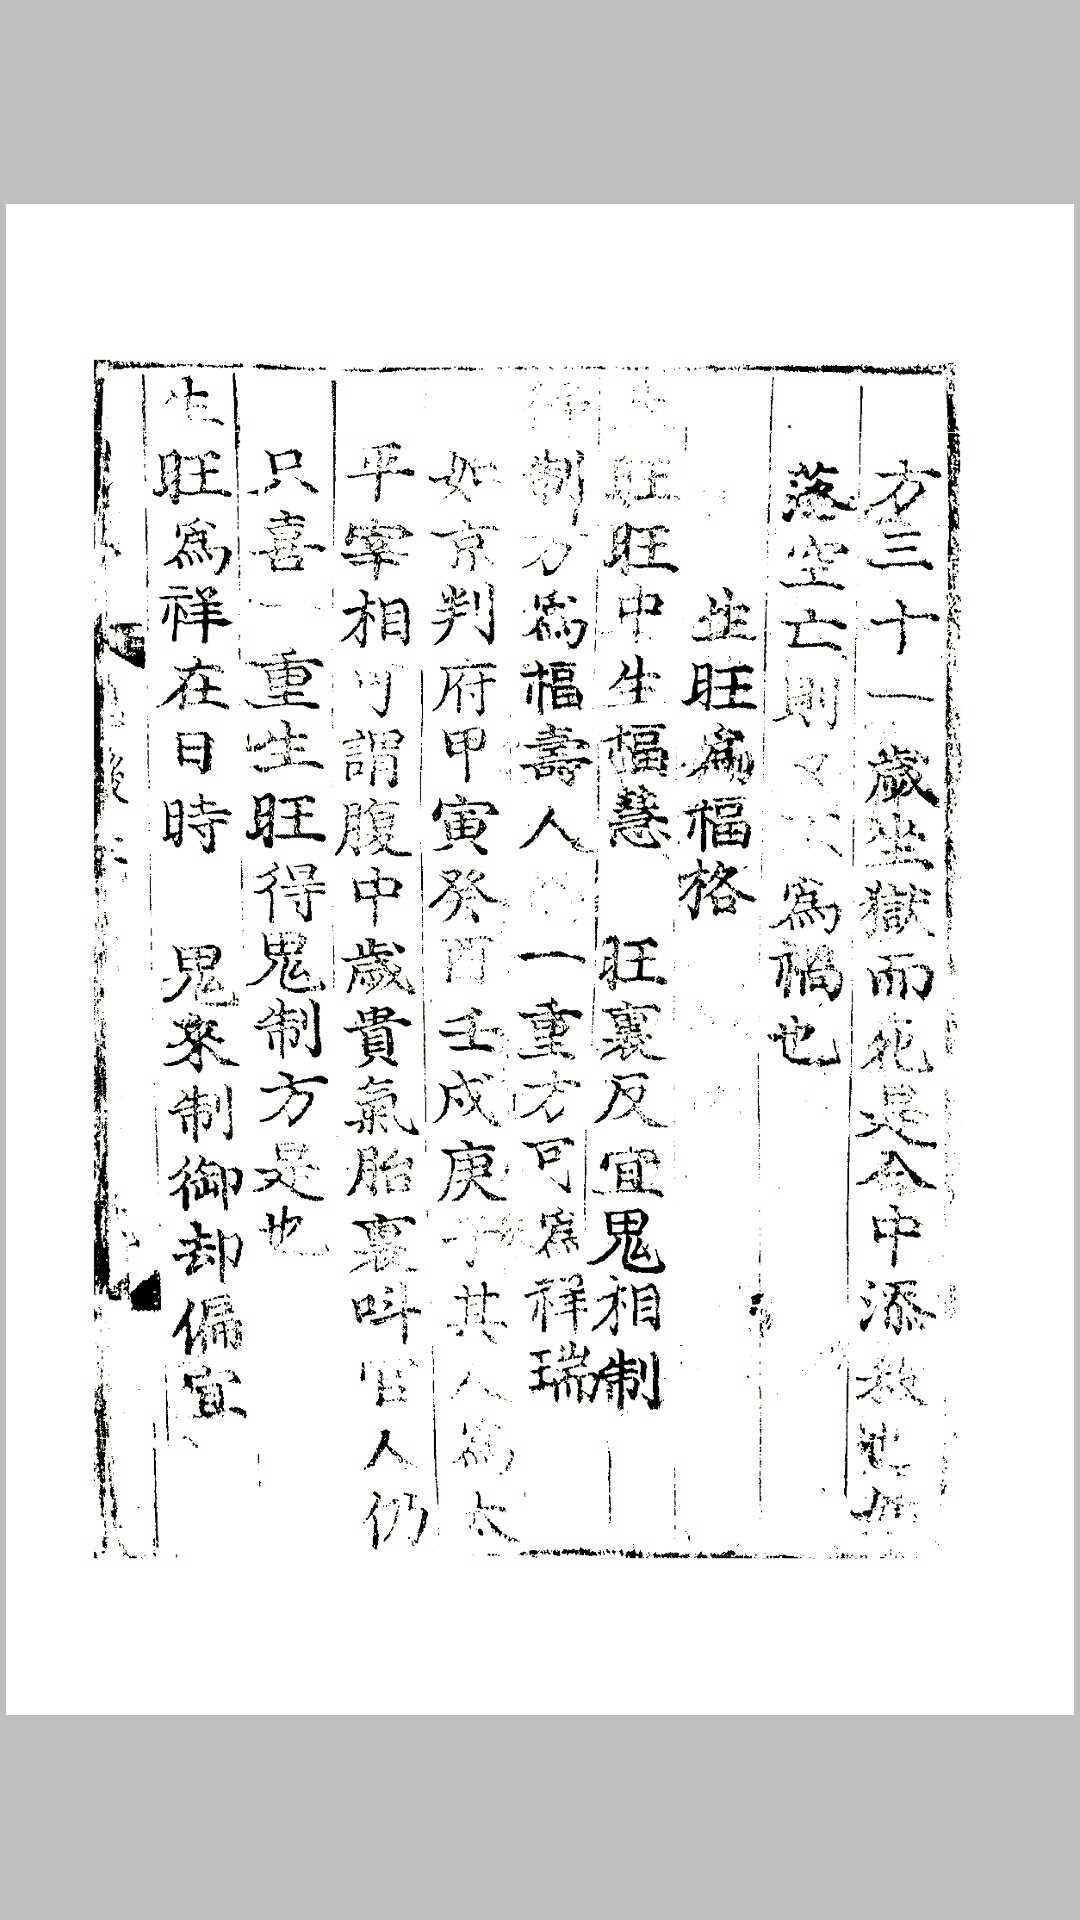 方三十一歲坐獄而死是命中添殺也如
落空亡則 不為禍也
生旺為福格
生旺旺中生福慧　旺裏反宜鬼相制
得制方為福壽人　一重方可為祥瑞
如京判府甲寅癸酉壬戌庚子其人為太
平宰相可謂腹中歲貴氣胎裏呌官人仍
只喜一重生旺得鬼制方是也
生旺為祥在日時　鬼來制御却偏宜